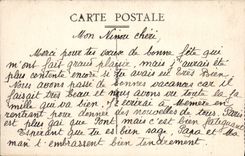 CARTE POSTALE
Mon Minou chéri
Merci pour tes vœux de bonne fête qui
m'ont fait grand plaisir, mais j'aurais été
plus contente encore si tu avais été Très Bien
Nous avons passé de bonnes vacances car il
faisait très beau et nous avons vu toute la fa
mille qui va bien. J'écrirai à Mémère en
rentrant pour donner des nouvelles de tous. Paris
est plus gai que mais c'est bien
Espérant que Tu es bien sage Papa et Ma
man t'embrassent bien tendrement.